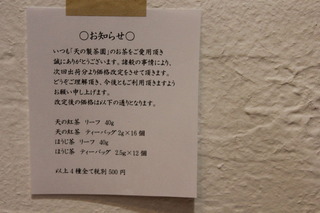 ○お知らせ○
いつも「天の製茶園」のお茶をご愛用頂き
誠にありがとうございます。諸般の事情により、
次回出荷分より価格改定をさせて頂きます。
どうぞご理解頂き、今後ともご利用頂きますよう
お願い申し上げます。
改定後の価格は以下の通りとなります。
天の紅茶 リーフ 40g
天の紅茶 ティーバッグ 2g×16個
ほうじ茶 リーフ 40g
ほうじ茶 ティーバッグ 2.5g×12個
以上4種全て税別500円